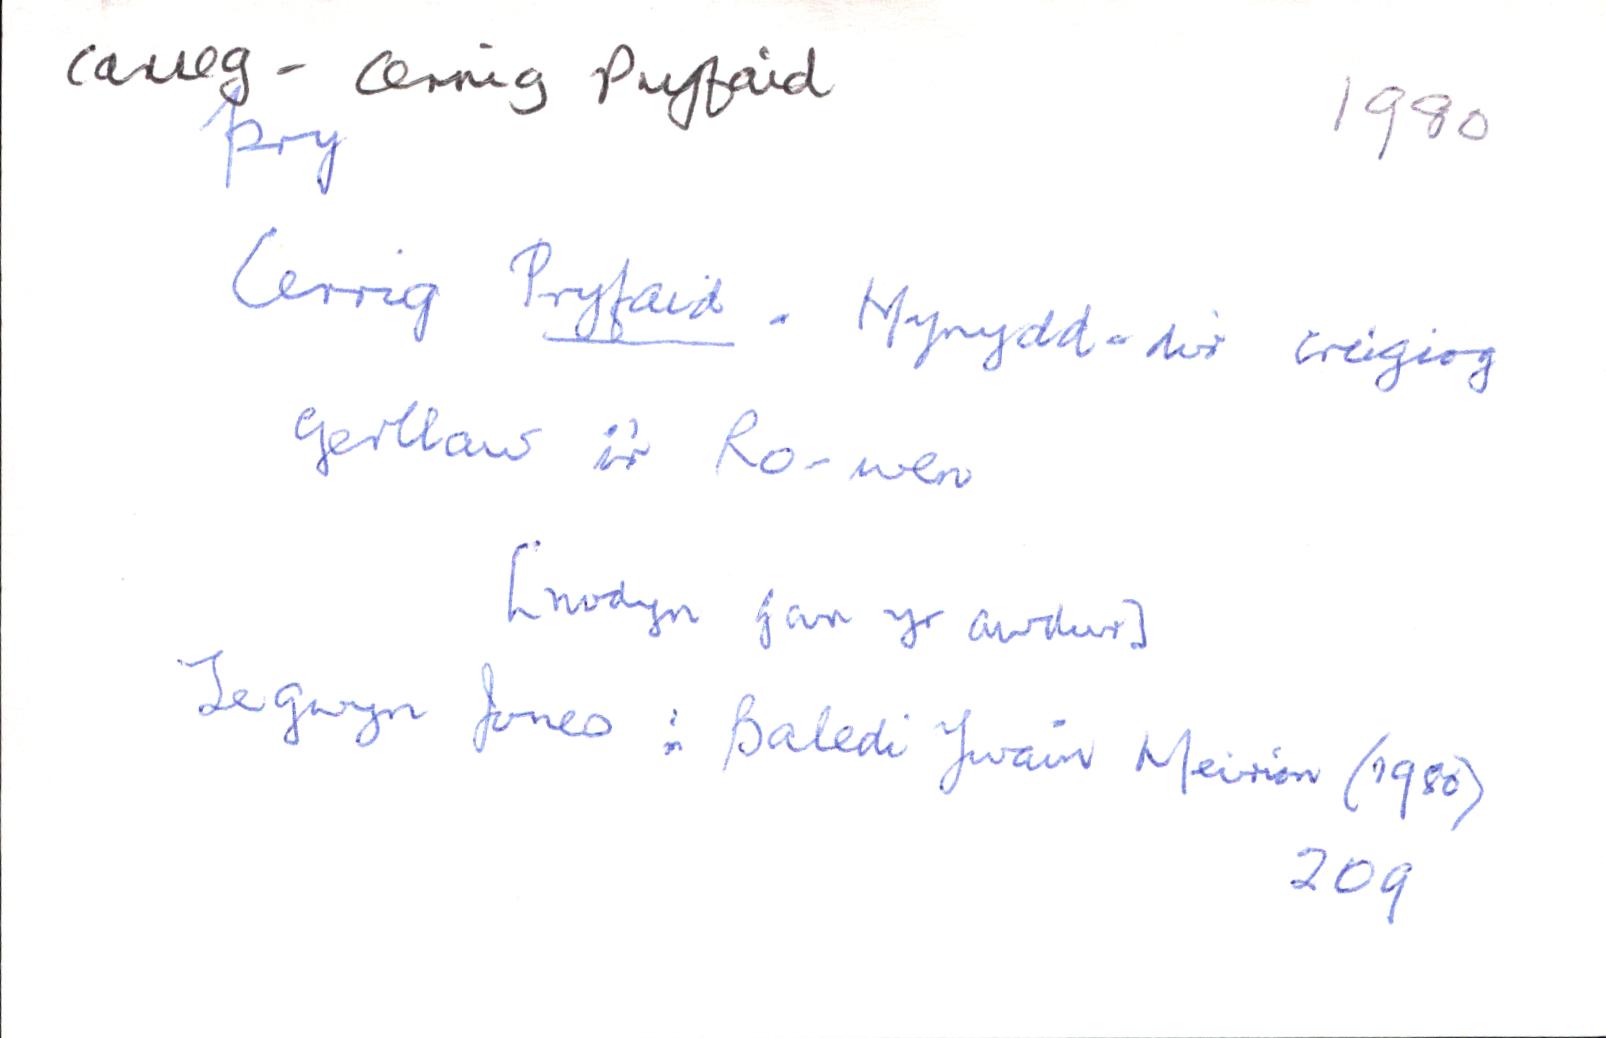 carreg - Cerrig Pryfaid
1980
pry
Cerrig Pryfaid. Mynydd-dir creigiog
gerllaw i'r Ro-wen
[nodyn gan yr awdur]
Tegwyn Jones : Baledi Ywain Meirion (1980)
209